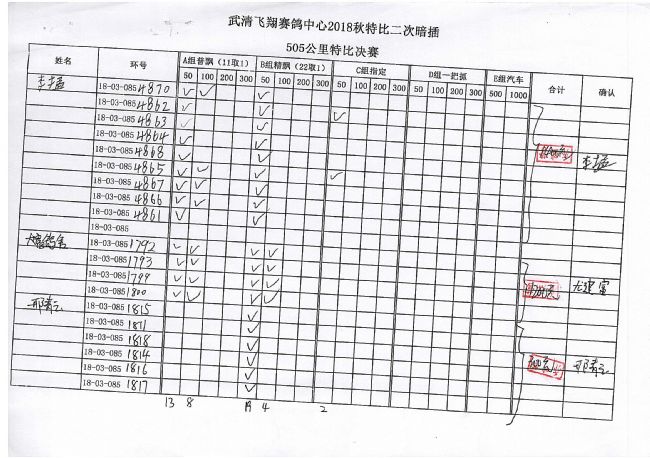 武清飞翔赛鸽中心2018秋特比二次暗插
505公里特比决赛
姓名 环号 A组普飘(11取1) B组精飘(22取1) C组指定 D组一把抓 E组汽车 合计 确认
50 100 200 300 50 100 200 300 50 100 200 300 50 100 200 300 500 1000
18-03-0854870 ✓ ✓ ✓
18-03-0854862 ✓ ✓ ✓
18-03-0854863 ✓ ✓
18-03-0854864 ✓ ✓
18-03-0854868 ✓ ✓
18-03-0854865 ✓ ✓ ✓ ✓
18-03-0854867 ✓ ✓ ✓
18-03-0854866 ✓ ✓ ✓
18-03-0854861 ✓ ✓
18-03-085
18-03-0851792 ✓ ✓ ✓ ✓
18-03-0851793 ✓ ✓ ✓ ✓
18-03-0851799 ✓ ✓ ✓ ✓ 尤建富
18-03-0851800 ✓ ✓ ✓ ✓
18-03-0851815 ✓
18-03-0851871 ✓
18-03-0851818 ✓
18-03-0851814 ✓
18-03-0851816 ✓
18-03-0851817 ✓
13 8 19 4 2